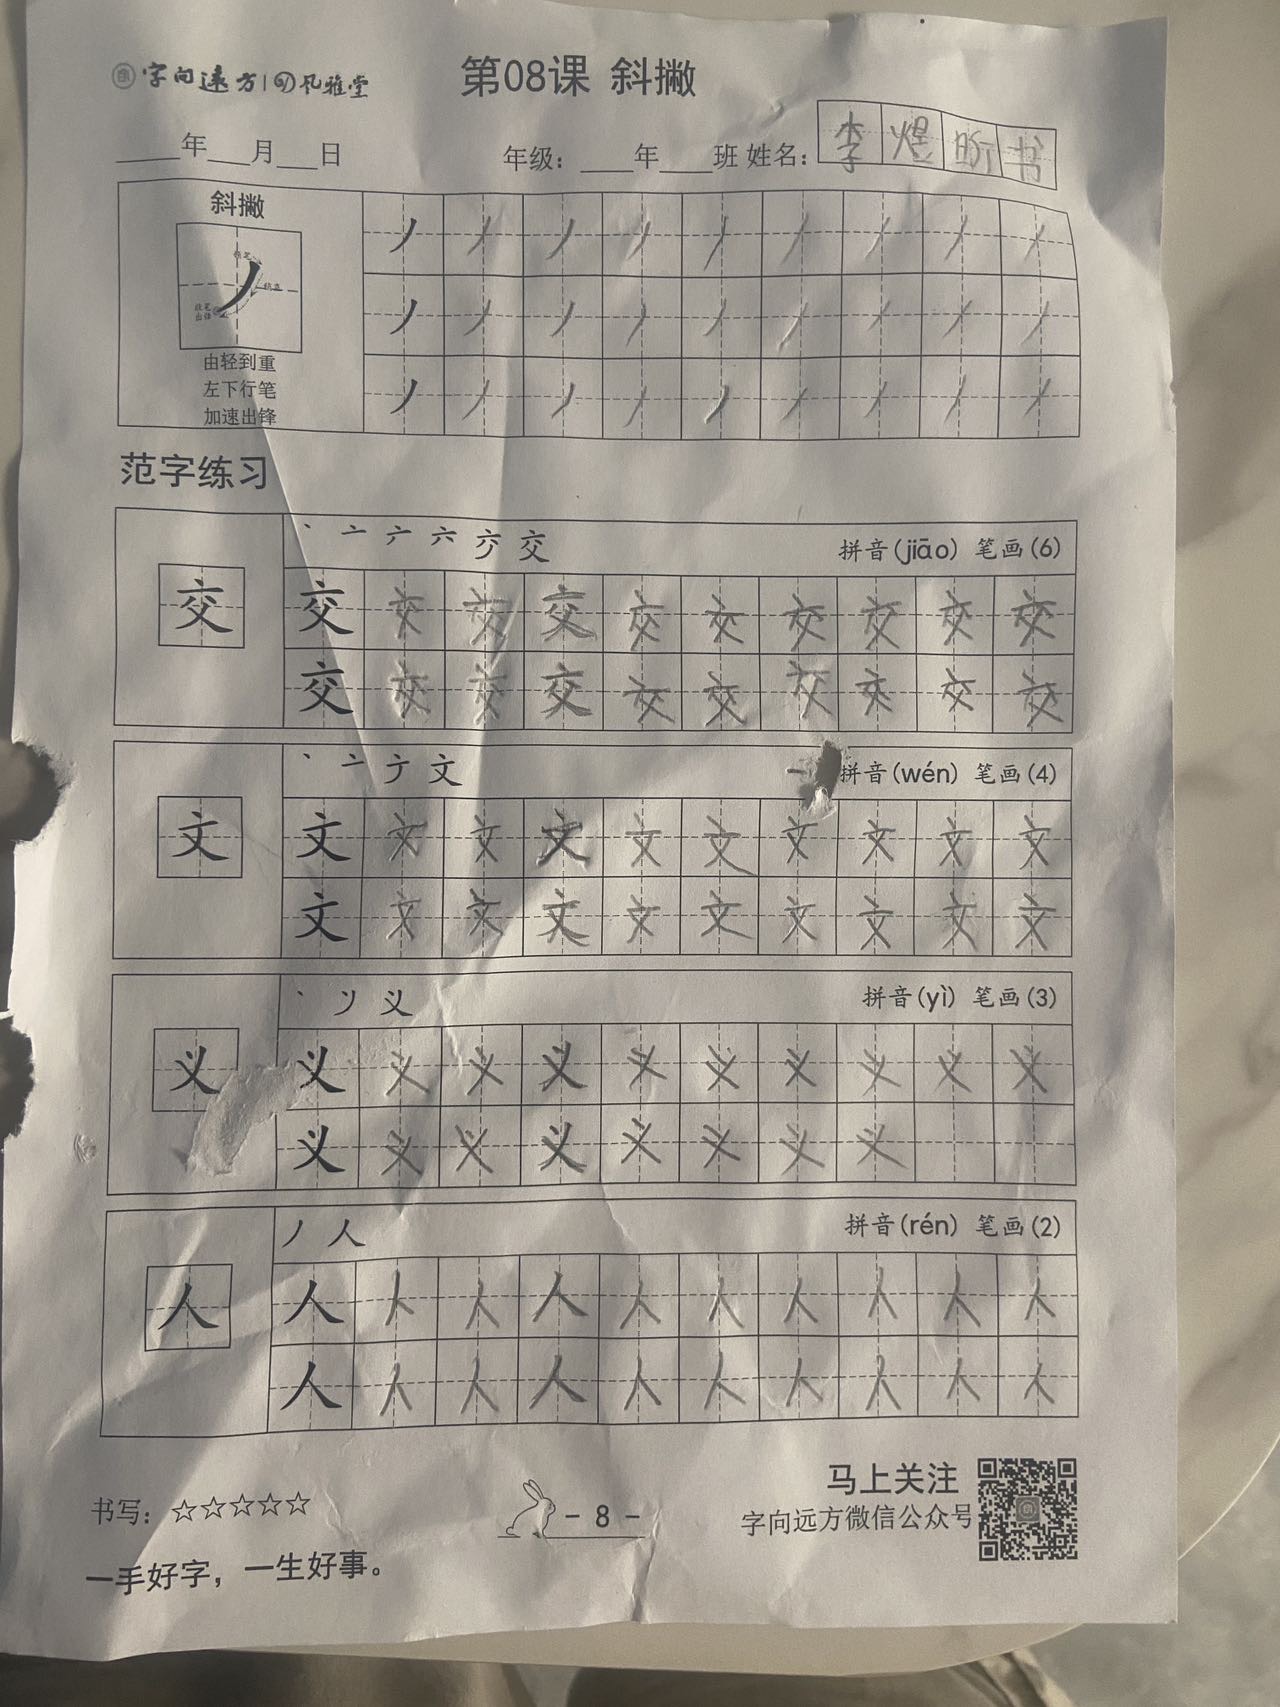 字向远方 | 风雅堂
第08课 斜撇
____年___月___日 年级：____年____班 姓名：李煜昕书
斜撇
收笔出锋
由轻到重
左下行笔
加速出锋
范字练习
丶 亠 六 交 拼音(jiāo) 笔画(6)
交 交 交 交 交 交 交 交 交 交 交
交 交 交 交 交 交 交 交 交 交
丶 亠 文 拼音(wén) 笔画(4)
文 文 文 文 文 文 文 文 文 文 文
文 文 文 文 文 文 文 文 文 文
丶 义 拼音(yì) 笔画(3)
义 义 义 义 义 义 义 义 义 义 义
义 义 义 义 义 义 义 义
丿 人 拼音(rén) 笔画(2)
人 人 人 人 人 人 人 人 人 人 人
人 人 人 人 人 人 人 人 人 人
书写：☆☆☆☆☆
- 8 -
马上关注
字向远方微信公众号
一手好字，一生好事。